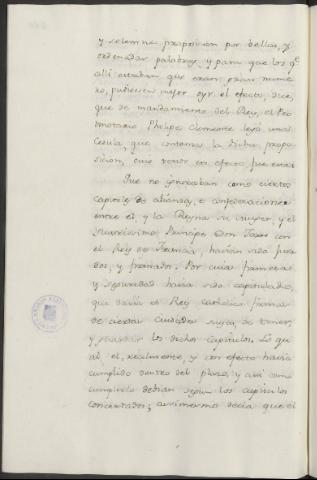 y solemne proposicion por bellas, y
ordenadas palabras, y para que los q̃
alli estaban, que eran gran nume
ro, pudiesen mejor oyr el efecto, dice,
que de mandamiento del Rey, el Pro
thonotario Phelipe Clemente leyó una
Cedula, que contenia la dicha propo
sicion, cuio tenor en efecto fue este:
Que no ignoraban como ciertos
capitulos de aliança, e confederaciones
entre el, y la Reyna su muger, y el
Illustrissimo Principe Don Juan con
el Rey de Francia, havian sido jura
dos, y firmados. Por cuia firmeza
y seguridad havia sido capitulado,
que daria el Rey Catholico firmas
de ciertas ciudades suyas de tener,
y guardar los dichos Capitulos. Lo qu
al, el, realmente, y con efecto havia
cumplido dentro del plazo, y assi como
cumplirlo debian segun los capitulos
concertados; assimesmo decia que el